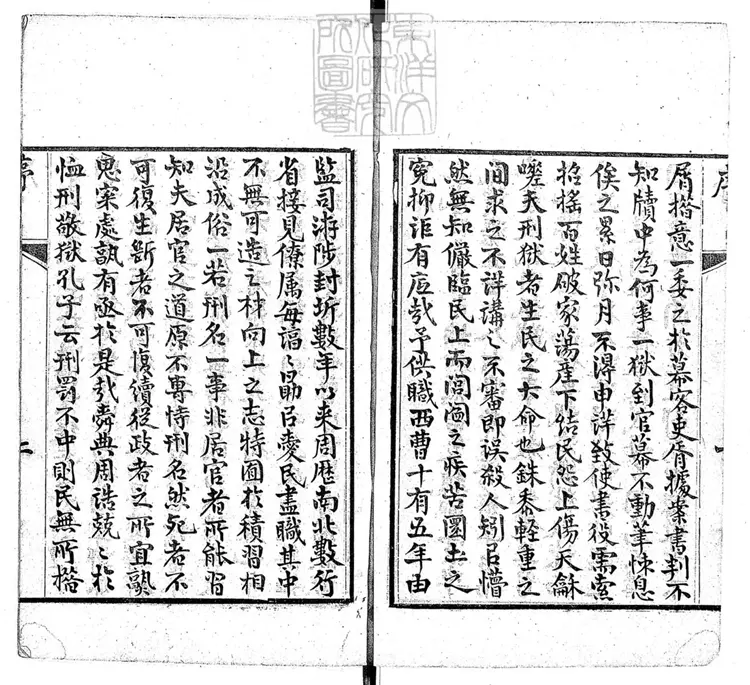 東洋文
化研究
所圖書
序
一
屑措意一委之於幕客吏胥據案書判不
知牘中為何事一獄到官幕不動筆悚息
俟之累日弥月不得申詳致使書役需索
招搖百姓破家蕩產下結民怨上傷天龢
嗟夫刑獄者生民之大命也銖黍輕重之
間求之不詳講〻不審即誤殺人矧㠯懵
然無知儼臨民上而閭閻之疾苦圜土之
冤抑詎有底哉予供職西曹十有五年由
監司洊陟封圻數年以来周歷南北數行
省接見僚属每諄〻勗㠯愛民盡職其中
不無可造之材向上之志特囿於積習相
沿成俗一若刑名一事非居官者所能習
知夫居官之道原不專恃刑名然死者不
可復生斷者不可復續從政者之所宜熟
思案處孰有亟於是哉舜典周誥兢〻於
恤刑敬獄孔子云刑罰不中則民無所措
序
二